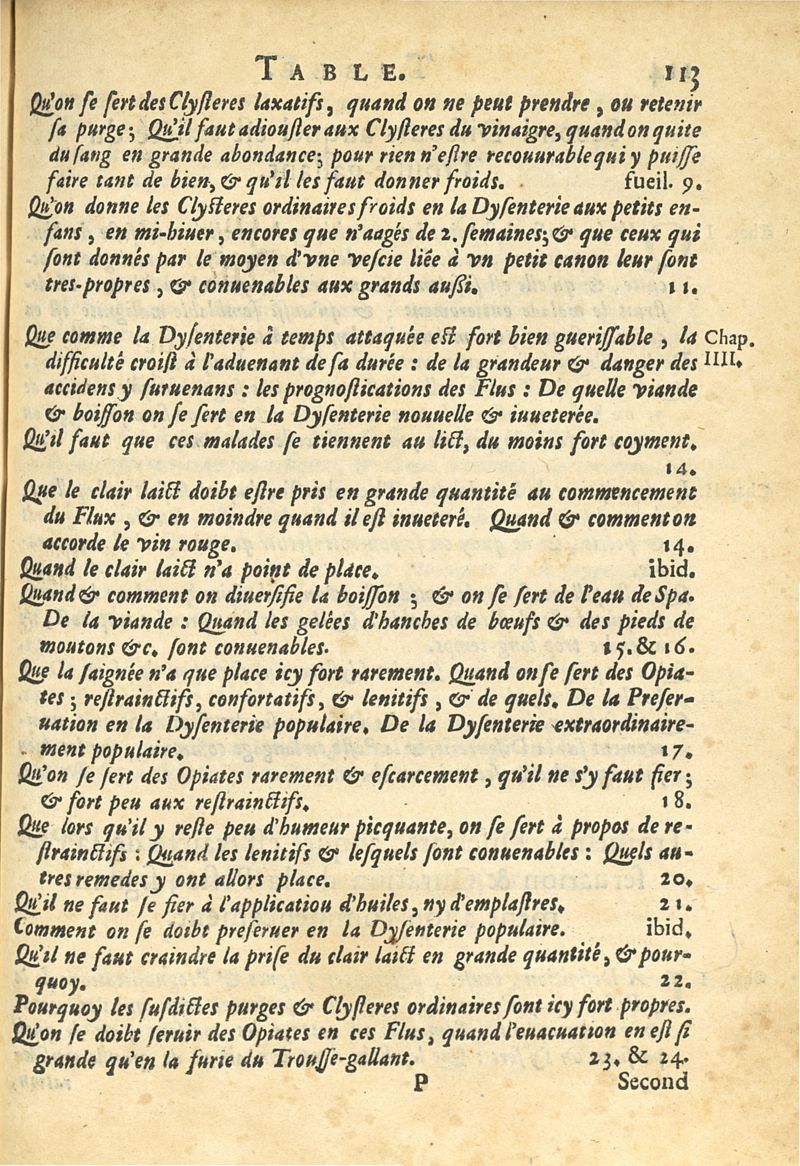 TABLE. 113
Qu'on se sert des Clysteres laxatifs, quand on ne peut prendre, ou retenir
sa purge; Qu'il faut adiouster aux Clysteres du vinaigre, quand on quite
du sang en grande abondance; pour rien n'estre recouurable qui y puisse
faire tant de bien, & qu'il les faut donner froids. fueil. 9.
Qu'on donne les Clysteres ordinaires froids en la Dysenterie aux petits en-
fans, en mi-hiuer, encores que n'aagés de 2. semaines; & que ceux qui
sont donnés par le moyen d'vne vescie liée à vn petit canon leur sont
tres-propres, & conuenables aux grands aussi. 11.
Que comme la Dysenterie à temps attaquée est fort bien guerissable, la Chap.
difficulté croist à l'aduenant de sa durée : de la grandeur & danger des IIII.
accidens y suruenans : les prognostications des Flus : De quelle viande
& boisson on se sert en la Dysenterie nouuelle & iuueterée.
Qu'il faut que ces malades se tiennent au lict, du moins fort coyment.
14.
Que le clair laict doibt estre pris en grande quantité au commencement
du Flux, & en moindre quand il est inueteré. Quand & comment on
accorde le vin rouge. 14.
Quand le clair laict n'a point de place. ibid.
Quand & comment on diuersifie la boisson ; & on se sert de l'eau de Spa.
De la viande : Quand les gelées d'hanches de bœufs & des pieds de
moutons &c. sont conuenables. 15. & 16.
Que la saignée n'a que place icy fort rarement. Quand on se sert des Opia-
tes ; restrainctifs, confortatifs, & lenitifs, & de quels. De la Preser-
uation en la Dysenterie populaire. De la Dysenterie extraordinaire-
ment populaire. 17.
Qu'on se sert des Opiates rarement & escarcement, qu'il ne s'y faut fier;
& fort peu aux restrainctifs. 18.
Que lors qu'il y reste peu d'humeur picquante, on se sert à propos de re-
strainctifs : Quand les lenitifs & lesquels sont conuenables : Quels au-
tres remedes y ont allors place. 20.
Qu'il ne faut se fier à l'application d'huiles, ny d'emplastres. 21.
Comment on se doibt preseruer en la Dysenterie populaire. ibid.
Qu'il ne faut craindre la prise du clair laict en grande quantité, & pour-
quoy. 22.
Pourquoy les susdictes purges & Clysteres ordinaires sont icy fort propres.
Qu'on se doibt seruir des Opiates en ces Flus, quand l'euacuation en est si
grande qu'en la furie du Trousse-gallant. 23. & 24.
P Second